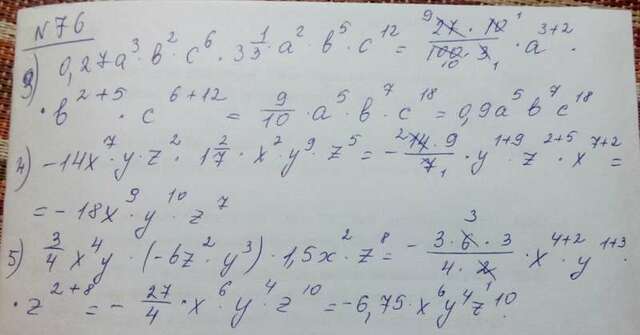 N 76
3) 0,27a³ · b² · c⁶ · 3 1/3 · a² · b⁵ · c¹² = (27 · 10)/(100 · 3) · a³⁺² ·
· b²⁺⁵ · c⁶⁺¹² = 9/10 · a⁵ · b⁷ · c¹⁸ = 0,9a⁵b⁷c¹⁸
4) -14x⁷ · y · z² · 1 2/7 · x² · y⁹ · z⁵ = -(14 · 9)/7 · y¹⁺⁹ · z²⁺⁵ · x⁷⁺² =
= -18x⁹ · y¹⁰ · z⁷
5) 3/4 x⁴y · (-6z² · y³) · 1,5x² · z⁸ = -(3 · 6 · 3)/(4 · 2) · x⁴⁺² · y¹⁺³ ·
· z²⁺⁸ = -27/4 · x⁶ · y⁴ · z¹⁰ = -6,75 · x⁶y⁴z¹⁰.